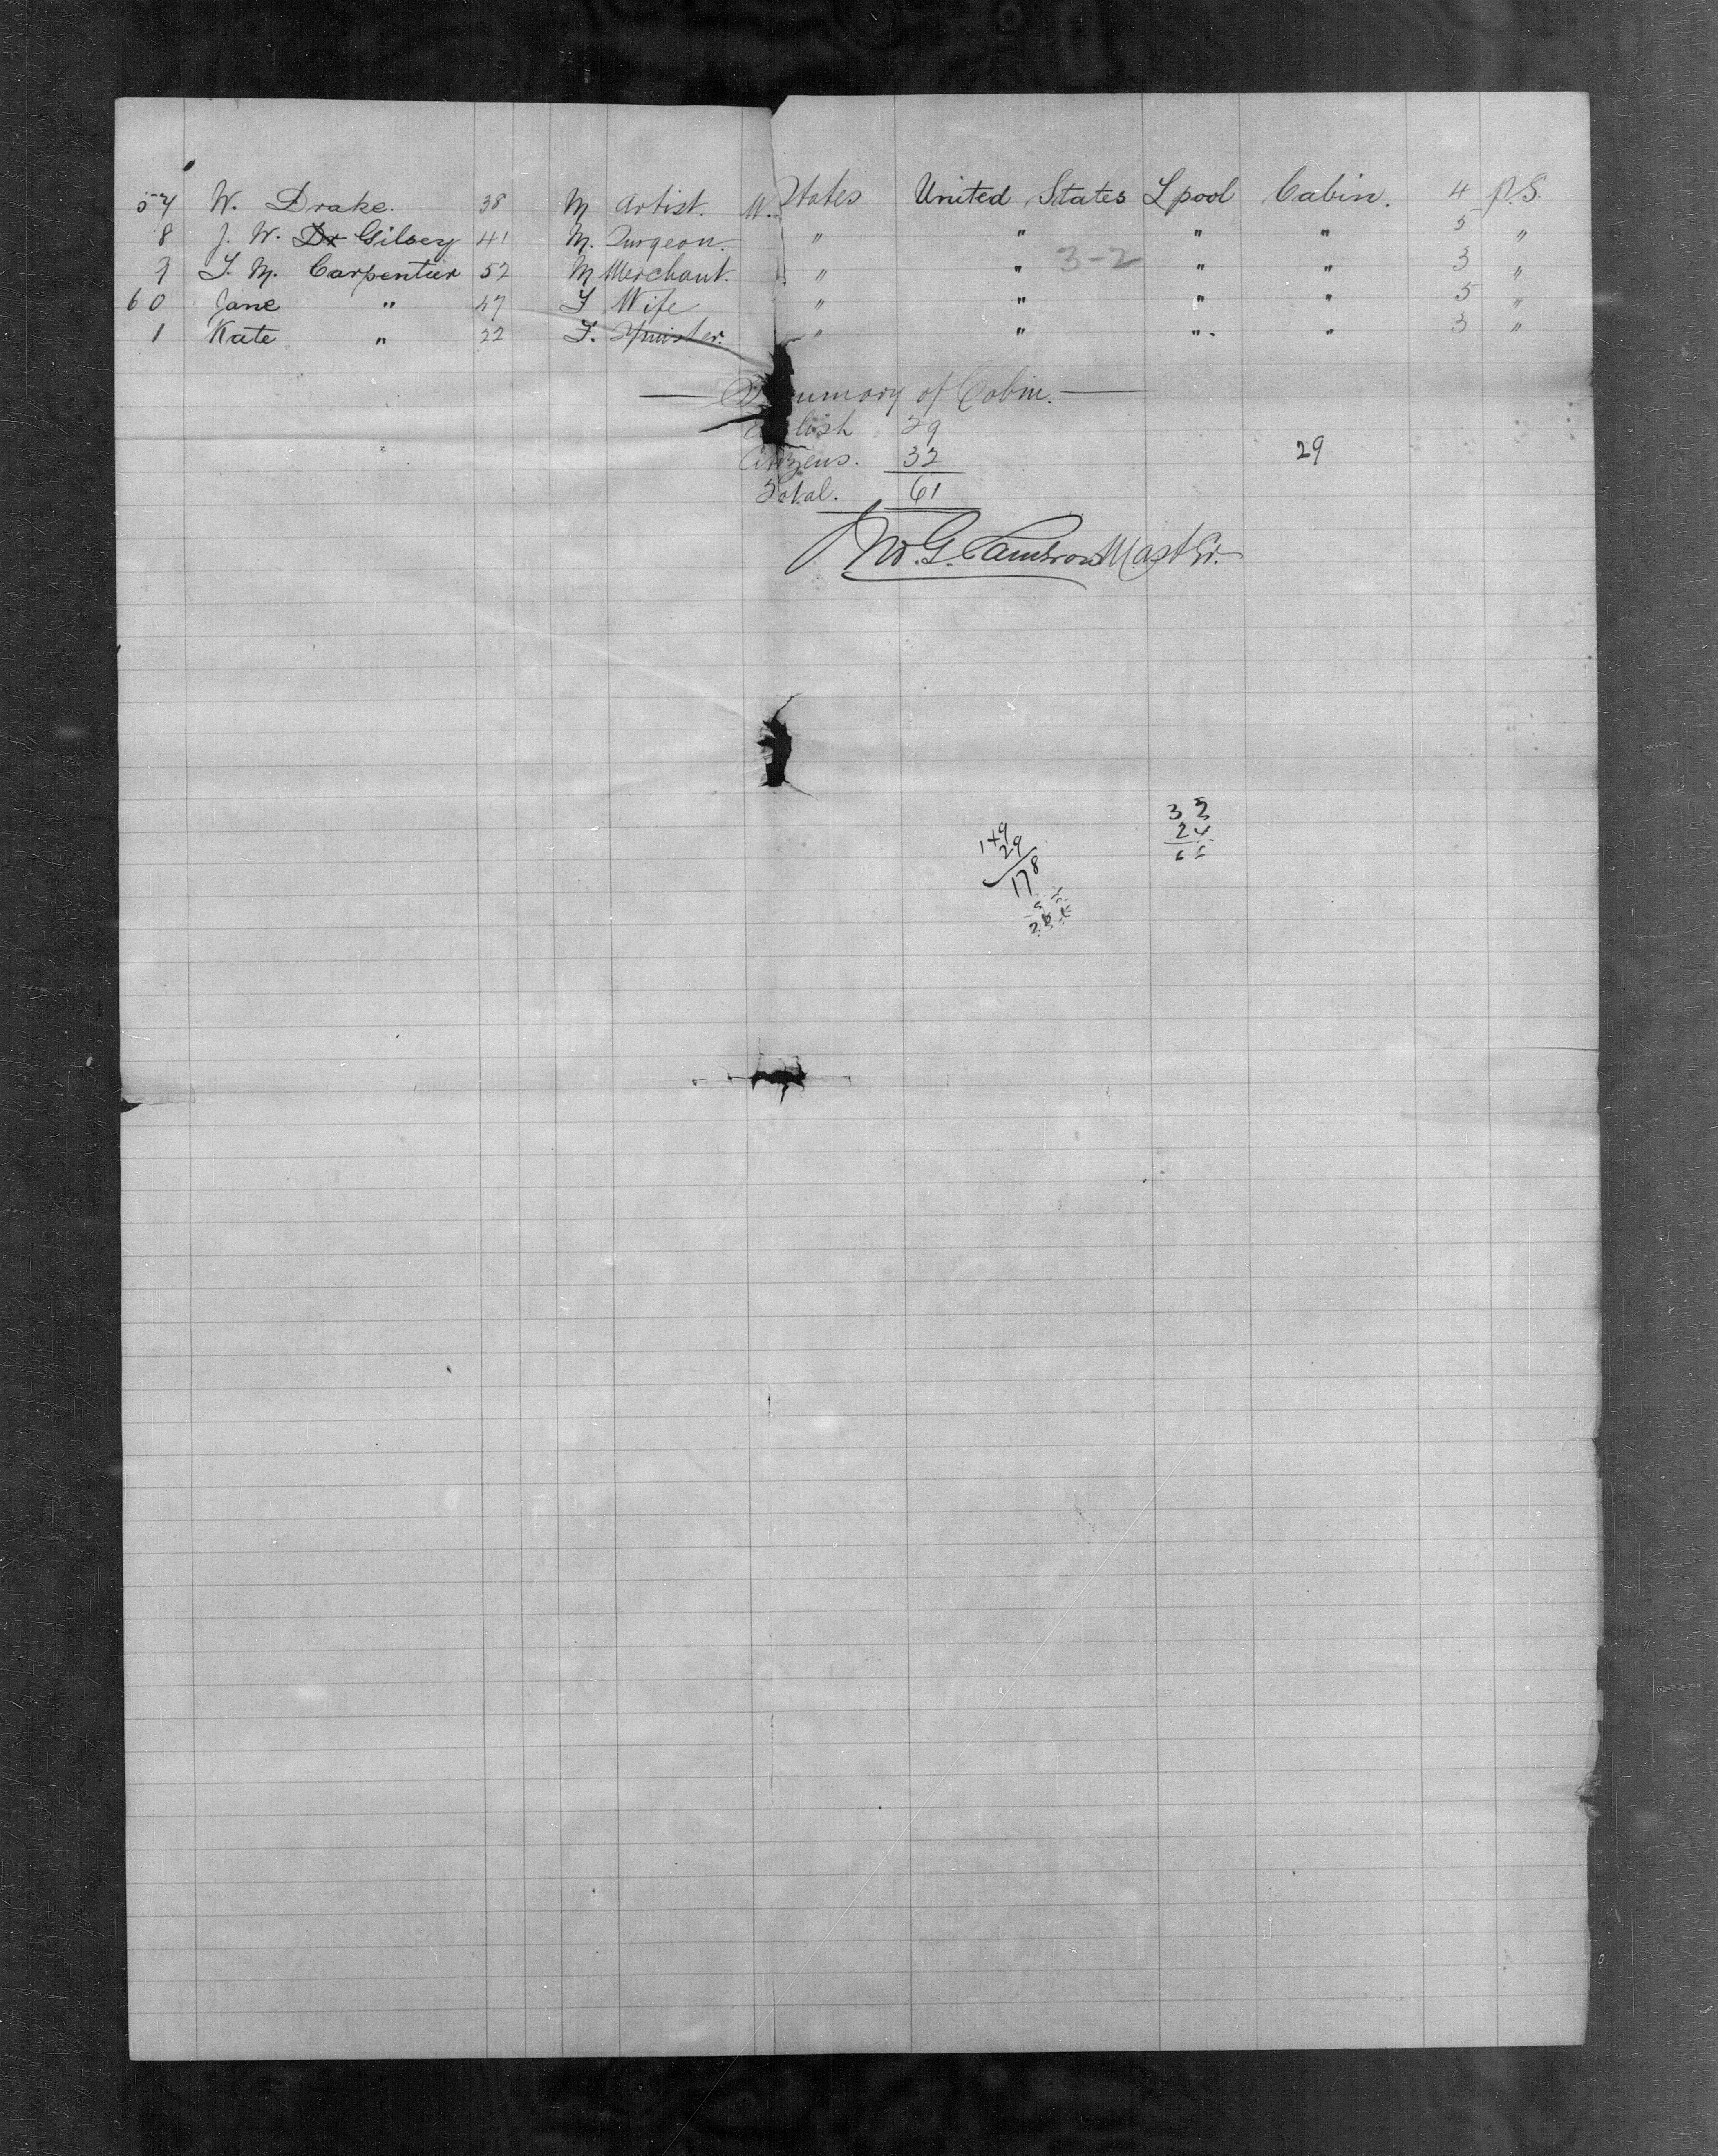 57 W. Drake. 38 M Artist. U. States United States Lpool Cabin. 4 P.S.
8 J. W. Dr Gilsey 41 M. Surgeon. " " " " 5 "
9 T. M. Carpentier 52 M Merchant. " " 3-2 " " 3 "
60 Jane " 47 F Wife " " " " 5 "
1 Kate " 22 F. Spinster. " " " " 3 "
Summary of Cabin.
English 29
Citizens. 32 29
Total. 61
Jno. G. Cameron Master.
32
149 24
29
178